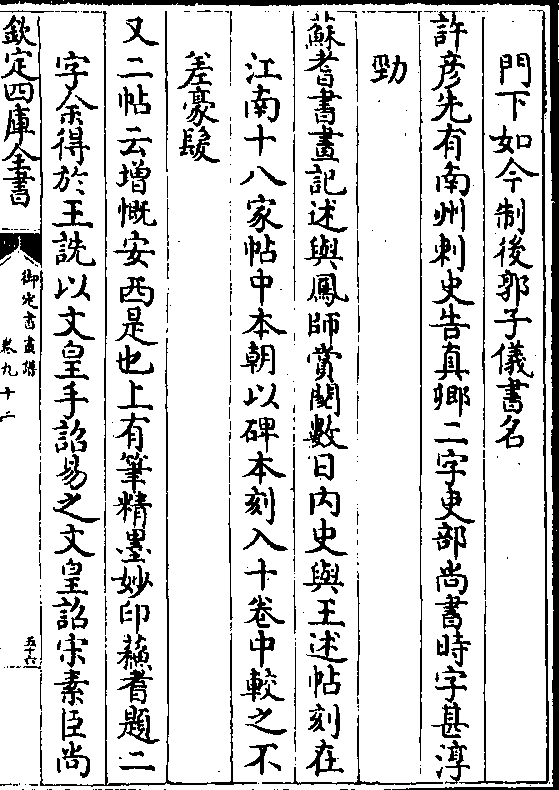 門下如今制後郭子儀書名
許彦先有南州刺史告真卿二字吏部尚書時字甚淳
勁
蘇耆書畫記述與鳳師賞閲數日内史與王述帖刻在
江南十八家帖中本朝以碑本刻入十卷中較之不
差豪髮
又二帖云増慨安西是也上有筆精墨妙印蘇耆題二
字余得於王詵以文皇手詔易之文皇詔宋素臣尚
欽定四庫全書
御定書畫譜
卷九十二
五十六